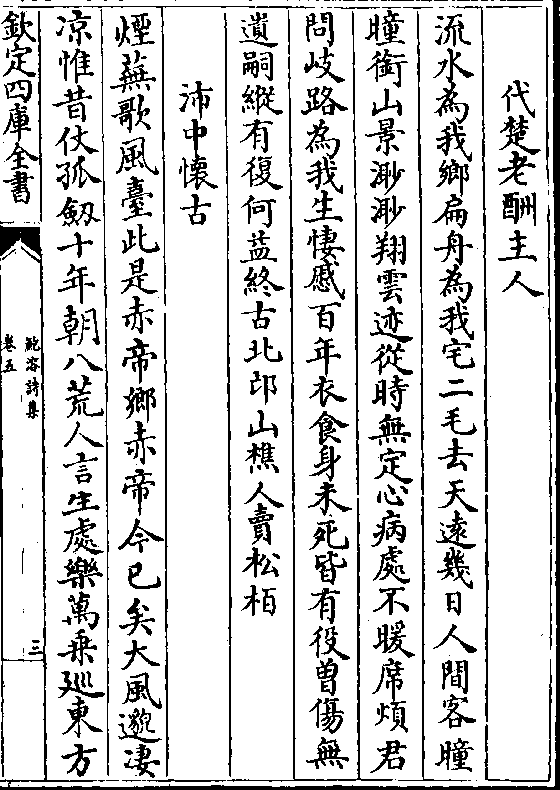 代楚老酬主人
流水為我鄉扁舟為我宅二毛去天遠幾日人間客曈
曈銜山景渺渺翔雲迹從時無定心病處不暖席煩君
問岐路為我生悽慼百年衣食身未死皆有役曽傷無
遺嗣縱有復何益終古北邙山樵人賣松栢
沛中懷古
煙蕪歌風臺此是赤帝鄉赤帝今已矣大風邈凄
凉惟昔仗孤劔十年朝八荒人言生處樂萬乗廵東方
欽定四庫全書
鮑溶詩集
卷五
三